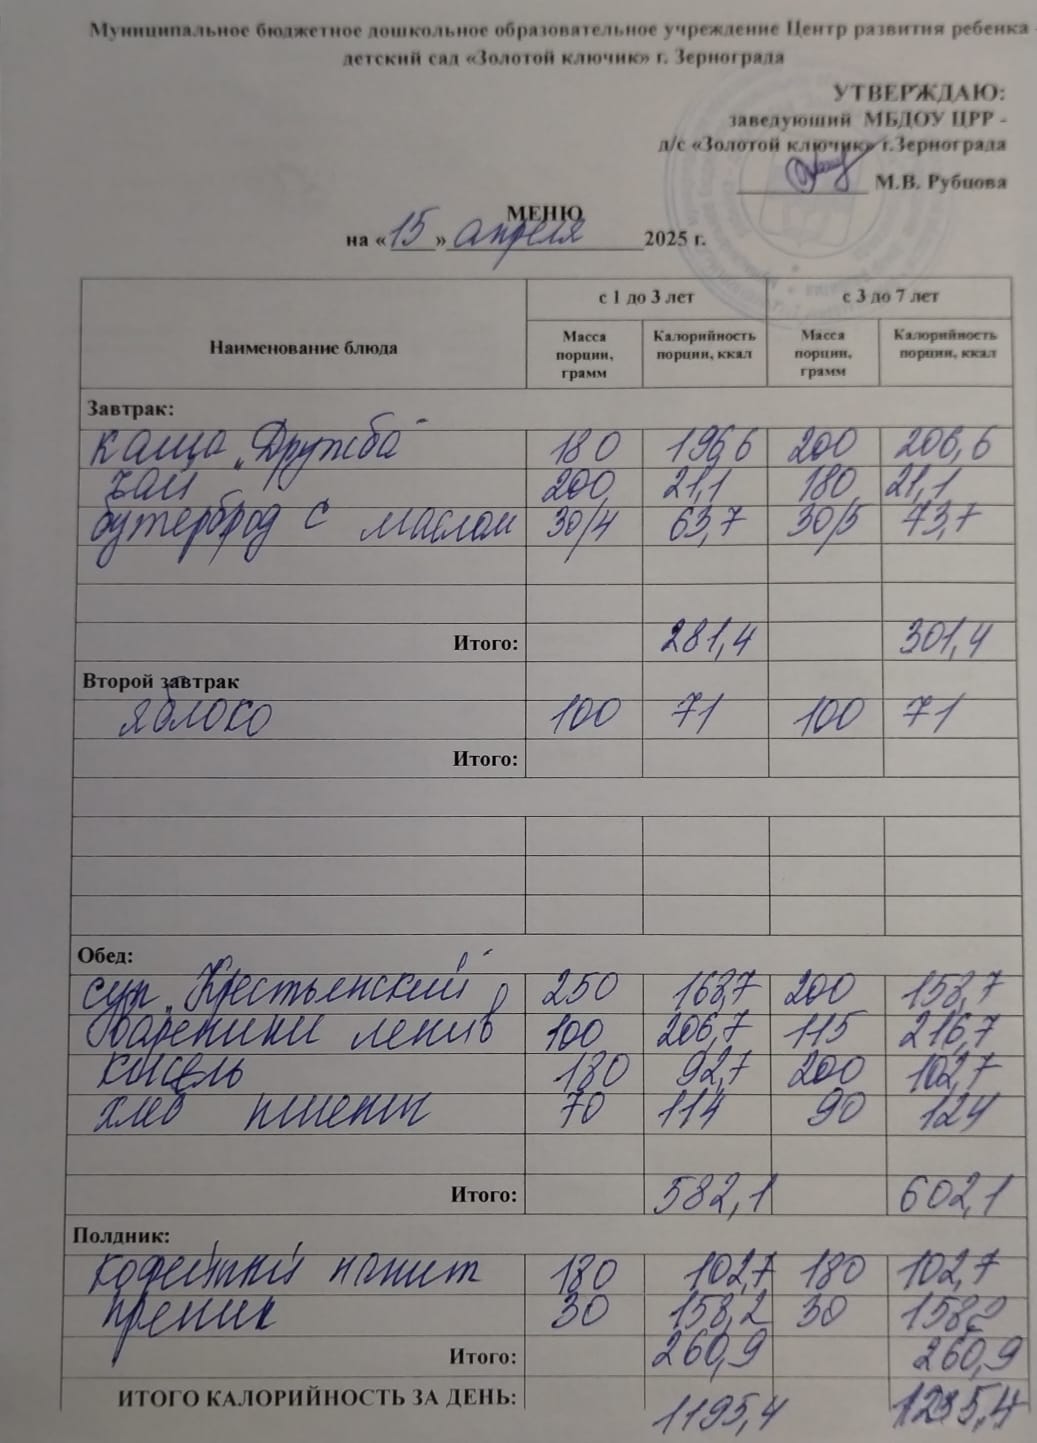 Муниципальное бюджетное дошкольное образовательное учреждение Центр развития ребенка -
детский сад «Золотой ключик» г. Зернограда
УТВЕРЖДАЮ:
заведующий МБДОУ ЦРР -
д/с «Золотой ключик» г.Зернограда
М.В. Рубцова
МЕНЮ
на «15» апреля 2025 г.
Наименование блюда с 1 до 3 лет с 3 до 7 лет
Масса порции, грамм Калорийность порции, ккал Масса порции, грамм Калорийность порции, ккал
Завтрак:
каша „Дружба" 180 196,6 200 206,6
чай 200 21,1 180 21,1
бутерброд с маслом 30/4 63,7 30/5 73,7
Итого: 281,4 301,4
Второй завтрак
яблоко 100 71 100 71
Итого:
Обед:
суп „Крестьянский" 250 168,7 200 158,7
Вареники ленив 100 206,7 115 216,7
кисель 180 92,7 200 102,7
хлеб пшенич 70 114 90 124
Итого: 582,1 602,1
Полдник:
кофейный напит 180 102,7 180 102,7
пряник 30 158,2 30 158,2
Итого: 260,9 260,9
ИТОГО КАЛОРИЙНОСТЬ ЗА ДЕНЬ: 1195,4 1235,4